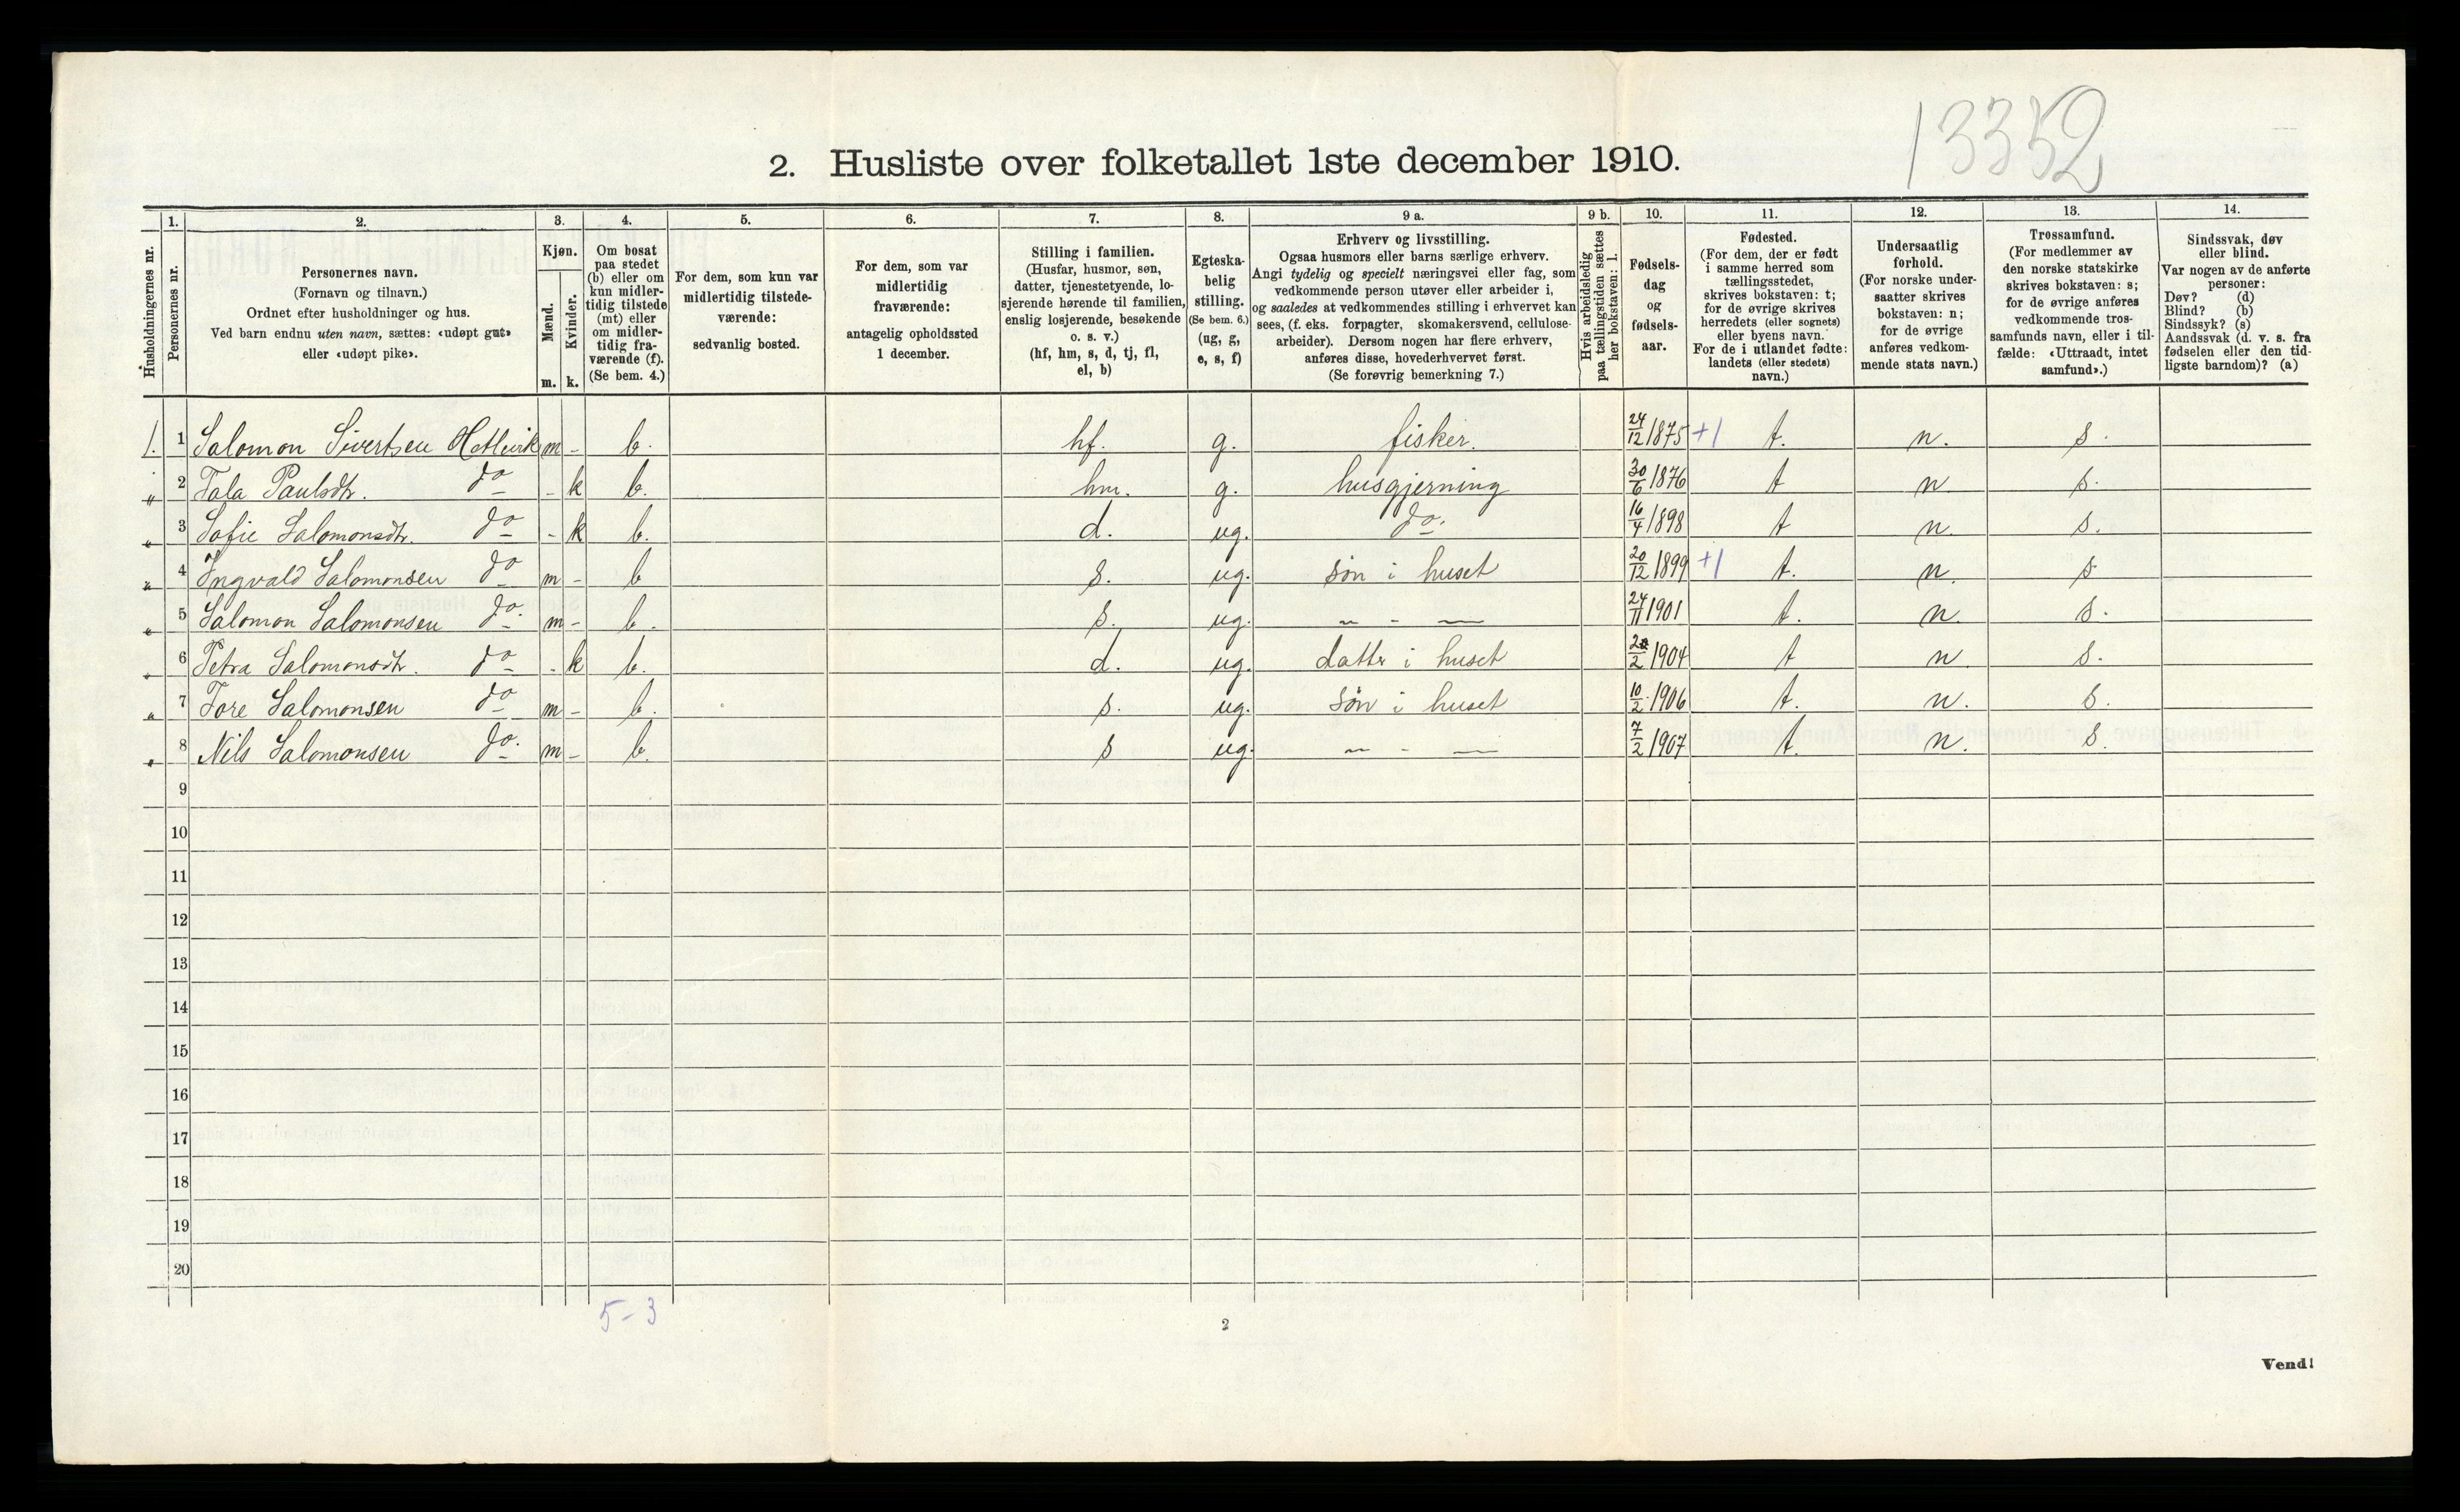 13352
2. Husliste over folketallet 1ste december 1910.
Husholdningernes nr.
1. Personernes nr.
2. Personernes navn.
(Fornavn og tilnavn.)
Ordnet efter husholdninger og hus.
Ved barn endnu uten navn, sættes: «udøpt gut»
eller «udøpt pike».
3. Kjøn.
Mænd. m.
Kvinder. k.
4. Om bosat
paa stedet
(b) eller om
kun midler-
tidig tilstede
(mt) eller
om midler-
tidig fra-
værende (f).
(Se bem. 4.)
5. For dem, som kun var
midlertidig tilstede-
værende:
sedvanlig bosted.
6. For dem, som var
midlertidig
fraværende:
antagelig opholdssted
1 december.
7. Stilling i familien.
(Husfar, husmor, søn,
datter, tjenestetyende, lo-
sjerende hørende til familien,
enslig losjerende, besøkende
o. s. v.)
(hf, hm, s, d, tj, fl,
el, b)
8. Egteska-
belig
stilling.
(Se bem. 6.)
(ug, g,
e, s, f)
9 a. Erhverv og livsstilling.
Ogsaa husmors eller barns særlige erhverv.
Angi tydelig og specielt næringsvei eller fag, som
vedkommende person utøver eller arbeider i,
og saaledes at vedkommendes stilling i erhvervet kan
sees, (f. eks. forpagter, skomakersvend, cellulose-
arbeider). Dersom nogen har flere erhverv,
anføres disse, hovederhvervet først.
(Se forøvrig bemerkning 7.)
9 b. Hvis arbeidsledig
paa tællingstiden sættes
her bokstaven: l.
10. Fødsels-
dag
og
fødsels-
aar.
11. Fødested.
(For dem, der er født
i samme herred som
tællingsstedet,
skrives bokstaven: t;
for de øvrige skrives
herredets (eller sognets)
eller byens navn.
For de i utlandet fødte:
landets (eller stedets)
navn.)
12. Undersaatlig
forhold.
(For norske under-
saatter skrives
bokstaven: n;
for de øvrige
anføres vedkom-
mende stats navn.)
13. Trossamfund.
(For medlemmer av
den norske statskirke
skrives bokstaven: s;
for de øvrige anføres
vedkommende tros-
samfunds navn, eller i til-
fælde: «Uttraadt, intet
samfund».)
14. Sindssvak, døv
eller blind.
Var nogen av de anførte
personer:
Døv? (d)
Blind? (b)
Sindssyk? (s)
Aandssvak (d. v. s. fra
fødselen eller den tid-
ligste barndom)? (a)
1. 1 Salomon Sivertsen Hatlevik m - b. hf. g. fisker. 24/12 1875 +1 t. n. s.
" 2 Tala Paulsdtr. do - k b. hm. g. husgjerning 30/6 1876 t n. s.
" 3 Sofie Salomonsdtr. do - k b. d. ug. do. 16/4 1898 t n. s.
" 4 Ingvald Salomonsen do m - b s. ug. søn i huset 20/12 1899 +1 t. n. s
" 5 Salomon Salomonsen do. m - b. s. ug. — - — 24/11 1901 t. n. s.
" 6 Petra Salomonsdtr. do - k b. d. ug. datter i huset 2/2 1904 t n. s.
" 7 Tore Salomonsen do m - b. s. ug. søn i huset 10/2 1906 t. n. s.
" 8 Nils Salomonsen do. m - b. s ug. — - — 7/2 1907 t. n. s.
9
10
11
12
13
14
15
16
17
18
19
20
5-3
2
Vend!